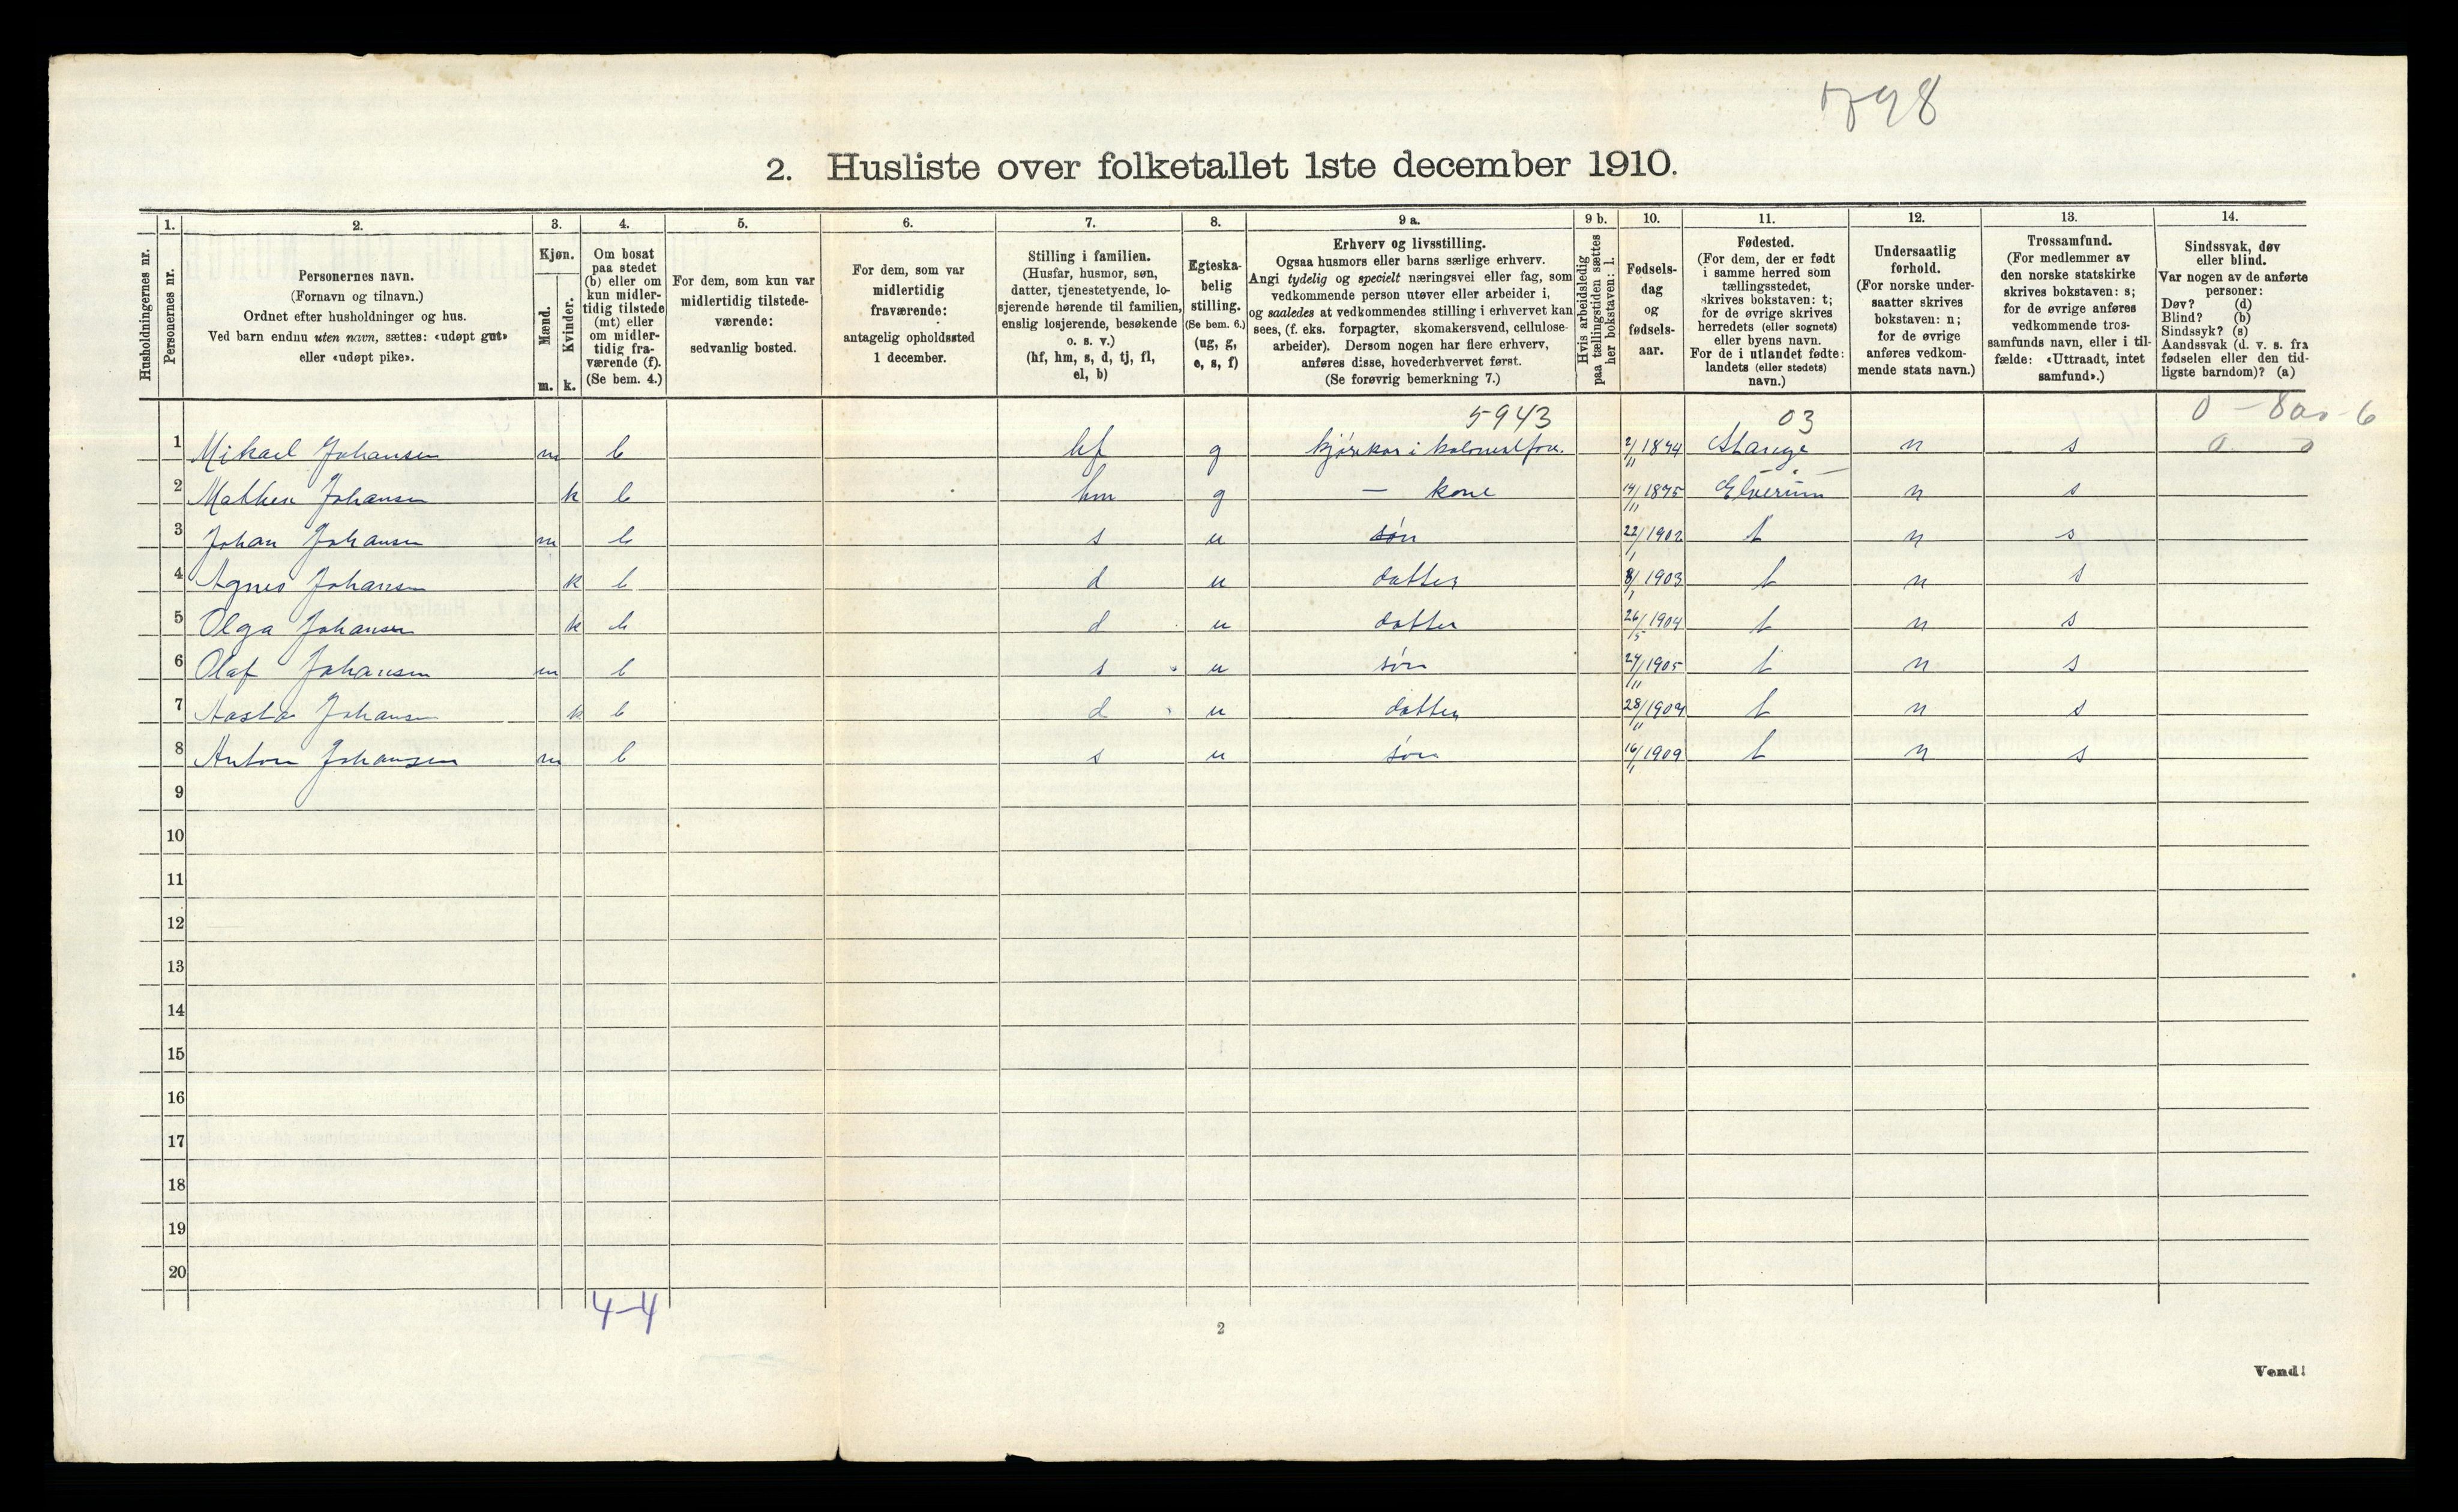 2. Husliste over folketallet 1ste december 1910.
Husholdningernes nr.
1.
Personernes nr.
2.
Personernes navn.
(Fornavn og tilnavn.)
Ordnet efter husholdninger og hus.
Ved barn endnu uten navn, sættes: «udøpt gut»
eller «udøpt pike».
3.
Kjøn.
Mænd.
Kvinder.
m. k.
4.
Om bosat
paa stedet
(b) eller om
kun midler-
tidig tilstede
(mt) eller
om midler-
tidig fra-
værende (f).
(Se bem. 4.)
5.
For dem, som kun var
midlertidig tilstede-
værende:
sedvanlig bosted.
6.
For dem, som var
midlertidig
fraværende:
antagelig opholdssted
1 december.
7.
Stilling i familien.
(Husfar, husmor, søn,
datter, tjenestetyende, lo-
sjerende hørende til familien,
enslig losjerende, besøkende
o. s. v.)
(hf, hm, s, d, tj, fl,
el, b)
8.
Egteska-
belig
stilling.
(Se bem. 6.)
(ug, g,
e, s, f)
9 a.
Erhverv og livsstilling.
Ogsaa husmors eller barns særlige erhverv.
Angi tydelig og specielt næringsvei eller fag, som
vedkommende person utøver eller arbeider i,
og saaledes at vedkommendes stilling i erhvervet kan
sees, (f. eks. forpagter, skomakersvend, cellulose-
arbeider). Dersom nogen har flere erhverv,
anføres disse, hovederhvervet først.
(Se forøvrig bemerkning 7.)
9 b.
Hvis arbeidsledig
paa tællingstiden sættes
her bokstaven: l.
10.
Fødsels-
dag
og
fødsels-
aar.
11.
Fødested.
(For dem, der er født
i samme herred som
tællingsstedet,
skrives bokstaven: t;
for de øvrige skrives
herredets (eller sognets)
eller byens navn.
For de i utlandet fødte:
landets (eller stedets)
navn.)
12.
Undersaatlig
forhold.
(For norske under-
saatter skrives
bokstaven: n;
for de øvrige
anføres vedkom-
mende stats navn.)
13.
Trossamfund.
(For medlemmer av
den norske statskirke
skrives bokstaven: s;
for de øvrige anføres
vedkommende tros-
samfunds navn, eller i til-
fælde: «Uttraadt, intet
samfund».)
14.
Sindssvak, døv
eller blind.
Var nogen av de anførte
personer:
Døv? (d)
Blind? (b)
Sindssyk? (s)
Aandssvak (d. v. s. fra
fødselen eller den tid-
ligste barndom)? (a)
5943 03
1 Mikael Johansen m b hf g 2/11 1874 Stange n s
2 Mathea Johansen k b hm g — kone 14/11 1875 Elverum n s
3 Johan Johansen m b s u søn 22/1 1902 t n s
4 Agnes Johansen k b d u datter 8/1 1903 t n s
5 Olga Johansen k b d u datter 26/5 1904 t n s
6 Olaf Johansen m b s u søn 24/11 1905 t n s
7 Aasta Johansen k b d u datter t n s
8 Anton Johansen m b s u søn 16/1 1909 t n s
9
10
11
12
13
14
15
16
17
18
19
20
4-4
2
Vend!